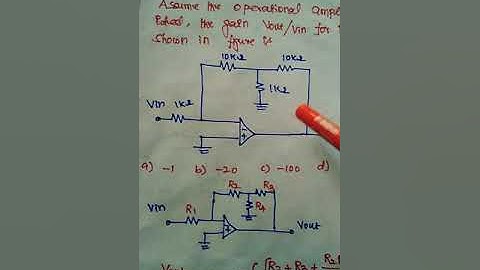 Assume the operational ampl
the gain Vout/Vin for
shown in figure is
10KΩ 10KΩ
1KΩ
Vin 1KΩ
a) -1 b) -20 c) -100 d)
R2 R3
Vin R1 R4
Vout
R2 + R3 +